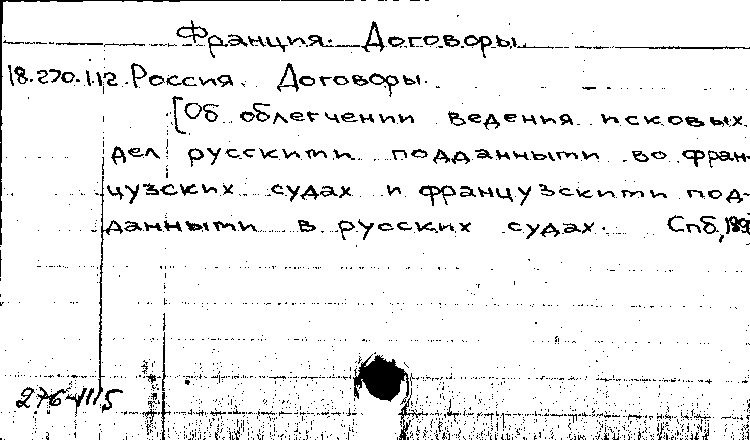 Франция. Договоры.
18.270.1.12. Россия. Договоры.
[Об облегчении ведения исковых
дел русскими подданными во фран-
цузских судах и французскими под-
данными в русских судах. Спб, 189
276-1115